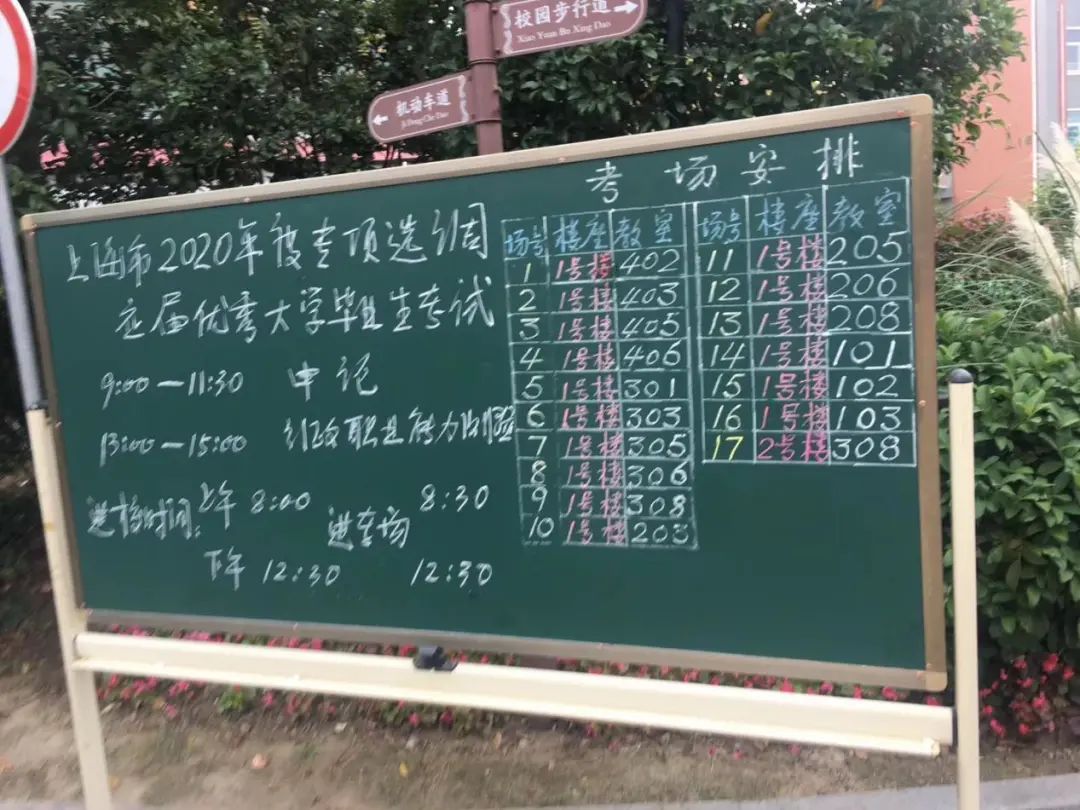 校园步行道
Xiao Yuan Bu Xing Dao
机动车道
Ji Dong Che Dao
考场安排
上海市2020年度专项选调
应届优秀大学毕业生考试
9:00—11:30 申论
13:00—15:00 行政职业能力测验
进校时间: 上午 8:00 进考场 8:30
下午 12:30 12:30
场号 楼座 教室
1 1号楼 402
2 1号楼 403
3 1号楼 405
4 1号楼 406
5 1号楼 301
6 1号楼 303
7 1号楼 305
8 1号楼 306
9 1号楼 308
10 1号楼 203
场号 楼座 教室
11 1号楼 205
12 1号楼 206
13 1号楼 208
14 1号楼 101
15 1号楼 102
16 1号楼 103
17 2号楼 308